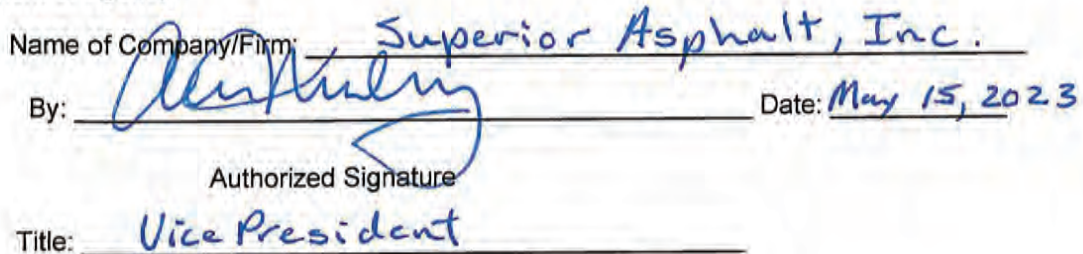 Name of Company/Firm: Superior Asphalt, Inc.
By: Date: May 15, 2023
Authorized Signature
Title: Vice President